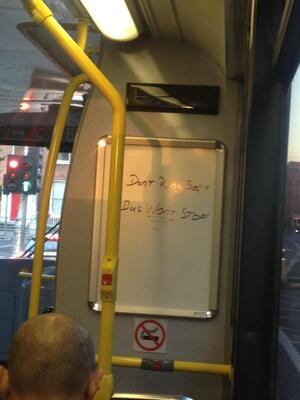 Don't Ring Bell?
Bus Wont Stop